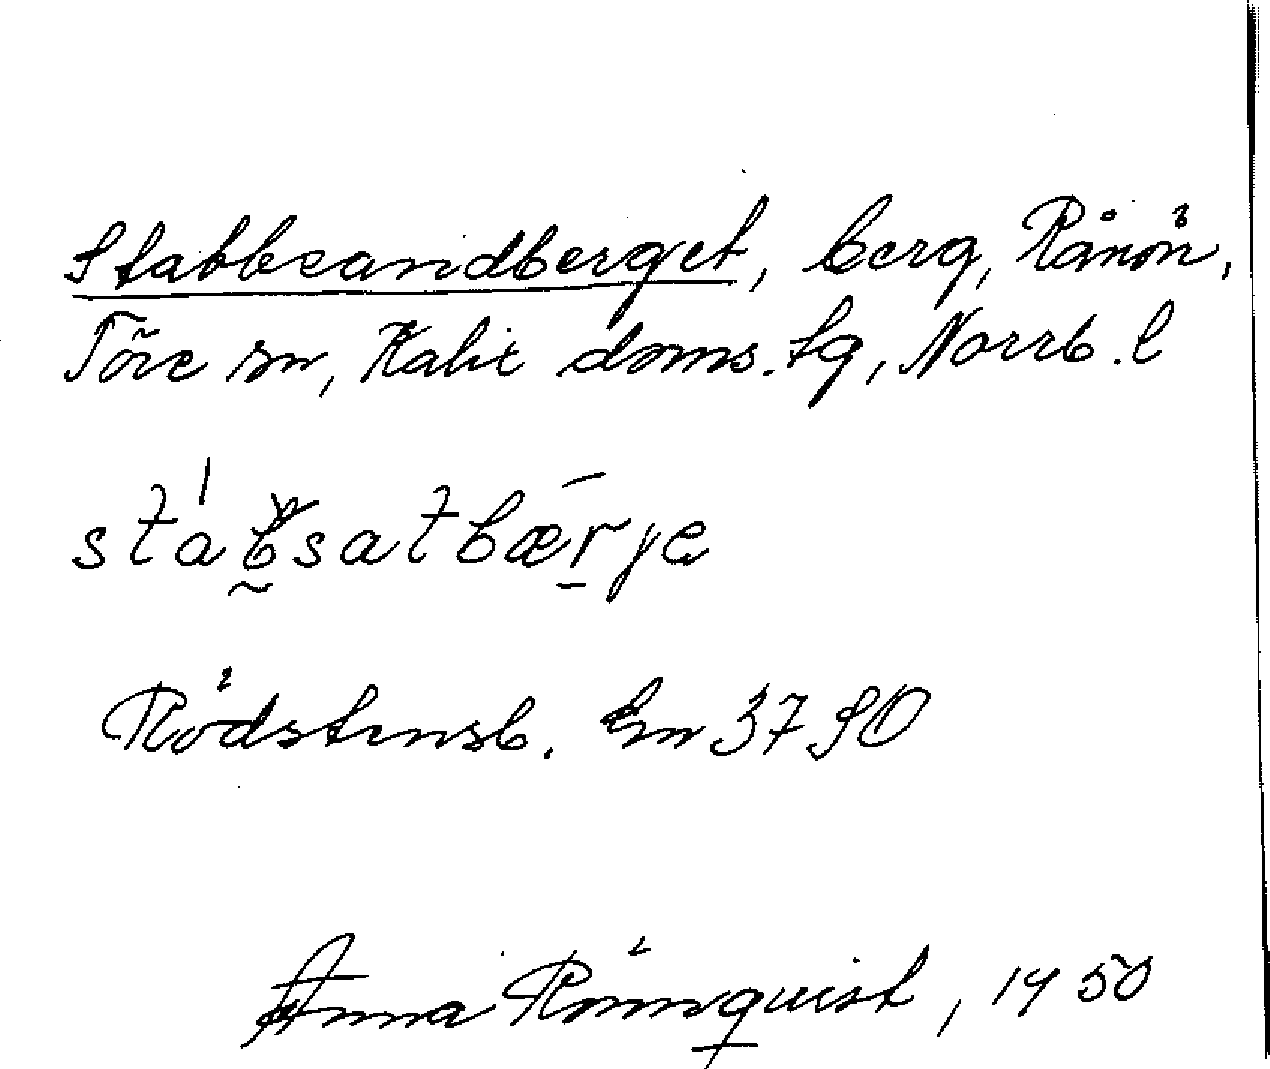 Stabbsandberget, berg, Rånön,
Töre sn, Kalix doms.tg, Norrb. l
Rödstensb. Em 3790
Anna Rönnquist, 1950